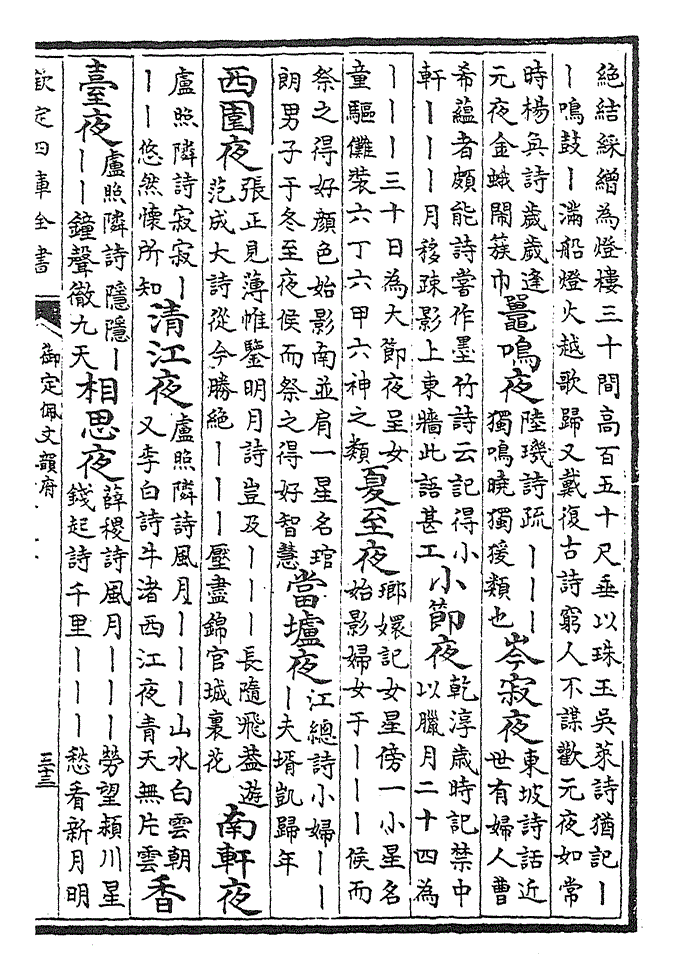 絶結綵繒為燈樓三十間高百五十尺垂以珠玉吳萊詩猶記丨
丨鳴鼓丨滿船燈火越歌歸又戴復古詩窮人不謀歡元夜如常
時楊奐詩歲歲逢
元夜金蛾閙簇巾
鼉鳴夜
陸璣詩疏丨丨丨
獨鳴曉獨猨類也
岑寂夜
東坡詩話近
世有婦人曹
希藴者頗能詩嘗作墨竹詩云記得小
軒丨丨丨月移疎影上東牆此語甚工
小節夜
乾淳歲時記禁中
以臘月二十四為
丨丨丨三十日為大節夜呈女
童驅儺裝六丁六甲六神之類
夏至夜
瑯嬛記女星傍一小星名
始影婦女于丨丨丨侯而
祭之得好顔色始影南並肩一星名琯
朗男子于冬至夜侯而祭之得好智慧
當壚夜
江總詩小婦丨丨
丨夫壻凱歸年
西園夜
張正見薄帷鑒明月詩豈及丨丨丨長隨飛葢遊
范成大詩從今勝絶丨丨丨壓盡錦官城裏花
南軒夜
盧照隣詩寂寂丨
丨丨悠然懷所知
清江夜
盧照隣詩風月丨丨丨山水白雲朝
又李白詩牛渚西江夜青天無片雲
香
臺夜
盧照隣詩隱隱丨
丨丨鐘聲徹九天
相思夜
薛稷詩風月丨丨丨勞望潁川星
錢起詩千里丨丨丨愁看新月明
欽定四庫全書
御定佩文韻府